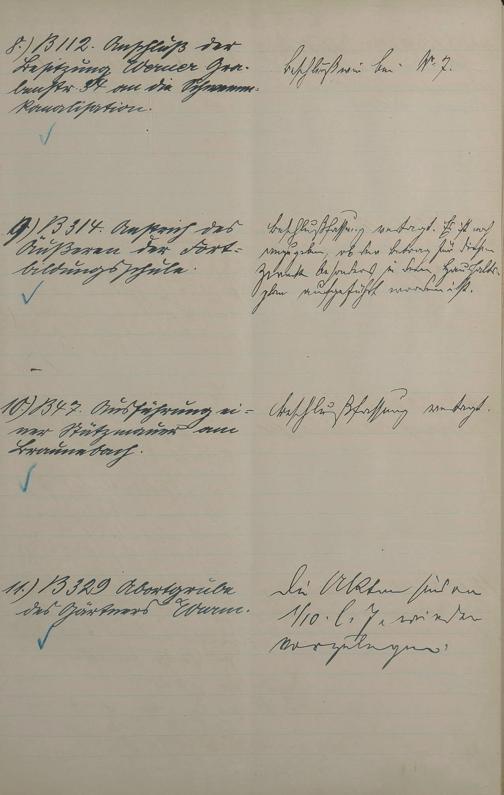 8.) B 112. Anschluß der
Besitzung Werner Gra-
benstr. 34 an die Schwemm-
kanalisation.
Beschluß wie bei Nr. 7.
9) B 314. Anstrich des
Äußeren der Fort-
bildungsschule.
Beschlußfassung vertagt. Es ist noch
anzugeben, ob der Betrag für diese
Zwecke besonders in dem Haushalts-
plan aufgeführt worden ist.
10) B 47. Ausführung ei-
ner Stützmauer am
Braunebach.
Beschlußfassung vertagt.
11.) B 329 Abortgrube
des Gärtners Wurm.
Die Akten sind am
1/10. l. J. wieder
vorzulegen.